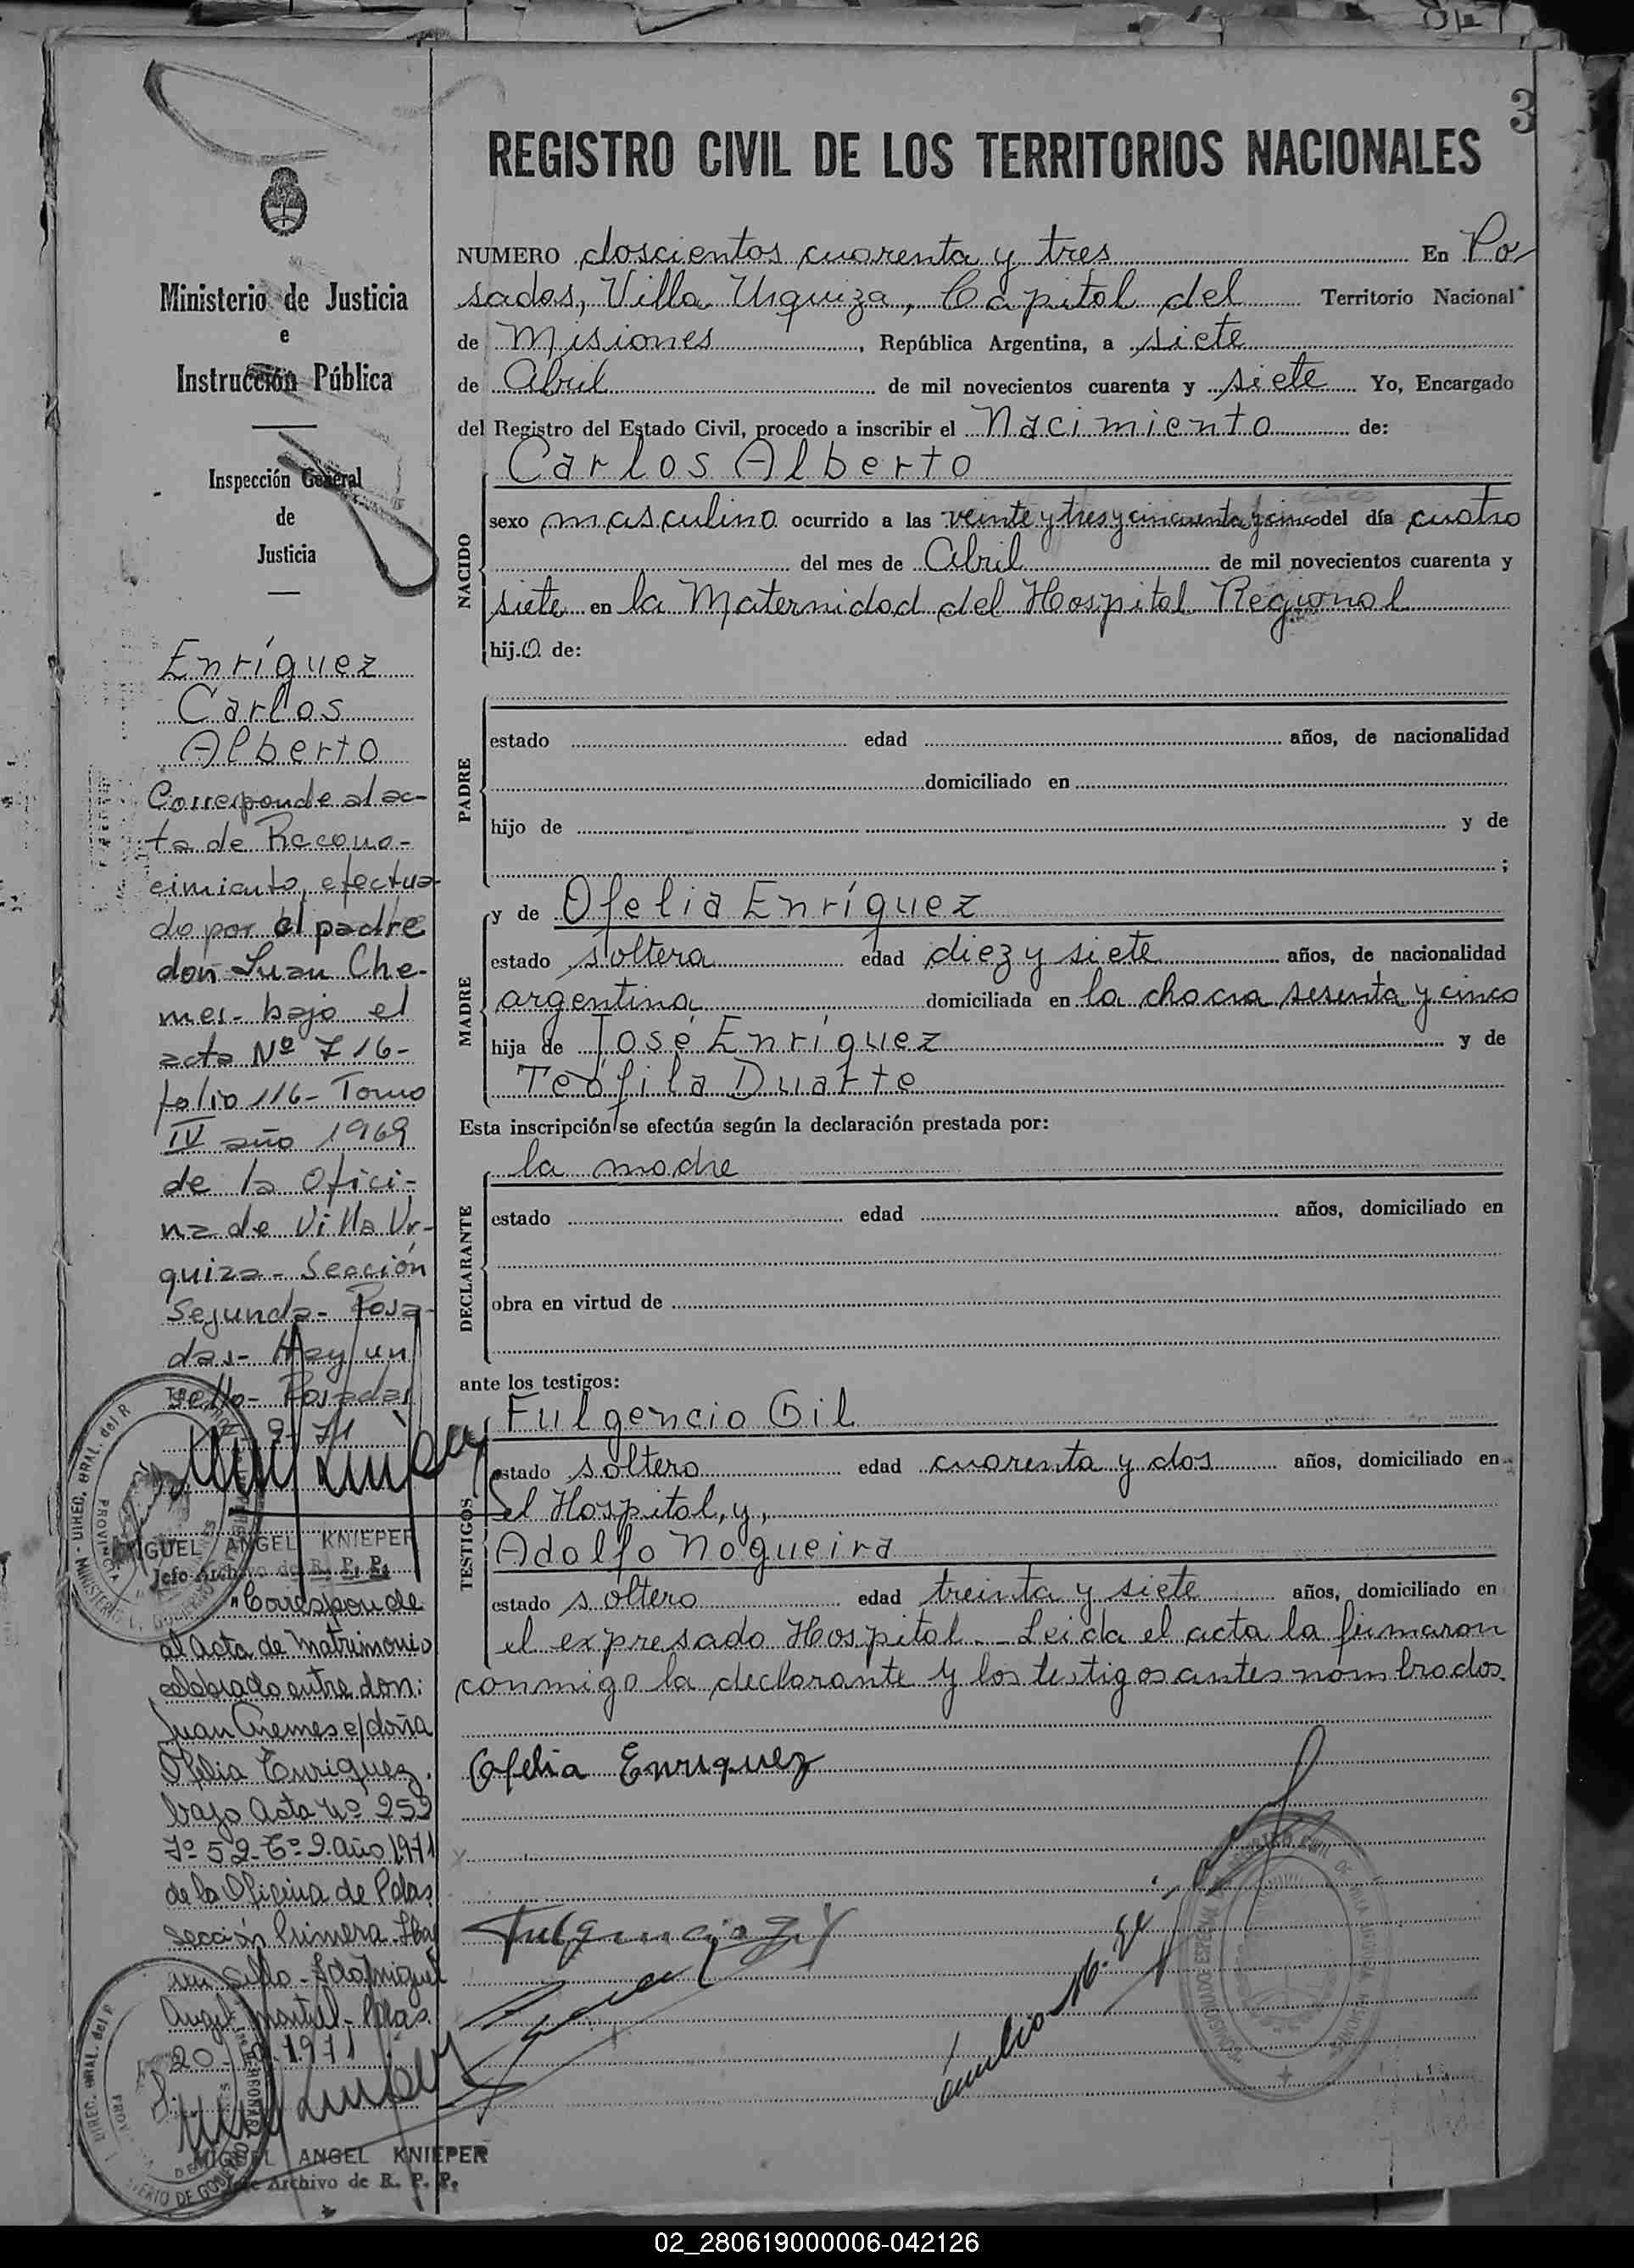 3
REGISTRO CIVIL DE LOS TERRITORIOS NACIONALES
Ministerio de Justicia
e
Instrucción Pública
Inspección General
de
Justicia
Enríquez
Carlos
Alberto
Corresponde al ac-
ta de Recono-
cimiento, efectua-
do por el padre
don Juan Che-
mes- bajo el
acta Nº 716-
folio 116- Tomo
IV año 1969
de la Ofici-
na de Villa Ur-
quiza- Sección
Segunda- Posa-
das- Hay un
sello- Posadas
9-71
MIGUEL ANGEL KNIEPER
Jefe Archivo de R. P. P.
"Corresponde
al Acta de Matrimonio
celebrado entre don:
Juan Chemes c/doña
Ofelia Enriquez.
bajo Acta Nº 252
Fº 52- Tº 2. Año 1971
de la Oficina de Pdas.
Sección Primera. Hay
un sello- Fdo Miguel
Angel
Pdas.
20- 1971
MIGUEL ANGEL KNIEPER
Jefe Archivo de R. P. P.
NUMERO doscientos cuarenta y tres En Po-
sadas, Villa Urquiza, Capital del Territorio Nacional
de Misiones, República Argentina, a siete
de Abril de mil novecientos cuarenta y siete Yo, Encargado
del Registro del Estado Civil, procedo a inscribir el Nacimiento de:
Carlos Alberto
NACIDO
sexo masculino ocurrido a las veinte y tres y cincuenta y cinco del día cuatro
del mes de Abril de mil novecientos cuarenta y
siete en la Maternidad del Hospital Regional
hijo de:
PADRE
estado edad años, de nacionalidad
domiciliado en
hijo de y de
;
MADRE
y de Ofelia Enríquez
estado soltera edad diez y siete años, de nacionalidad
argentina domiciliada en la chacra sesenta y cinco
hija de José Enríquez y de
Teófila Duarte
Esta inscripción se efectúa según la declaración prestada por:
la madre
DECLARANTE
estado edad años, domiciliado en
obra en virtud de
ante los testigos:
TESTIGOS
Fulgencio Gil
estado soltero edad cuarenta y dos años, domiciliado en
el Hospital, y,
Adolfo Nogueira
estado soltero edad treinta y siete años, domiciliado en
el expresado Hospital.- Leida el acta la firmaron
conmigo la declarante y los testigos antes nombrados.
Ofelia Enriquez
Fulgencio Gil
02_280619000006-042126